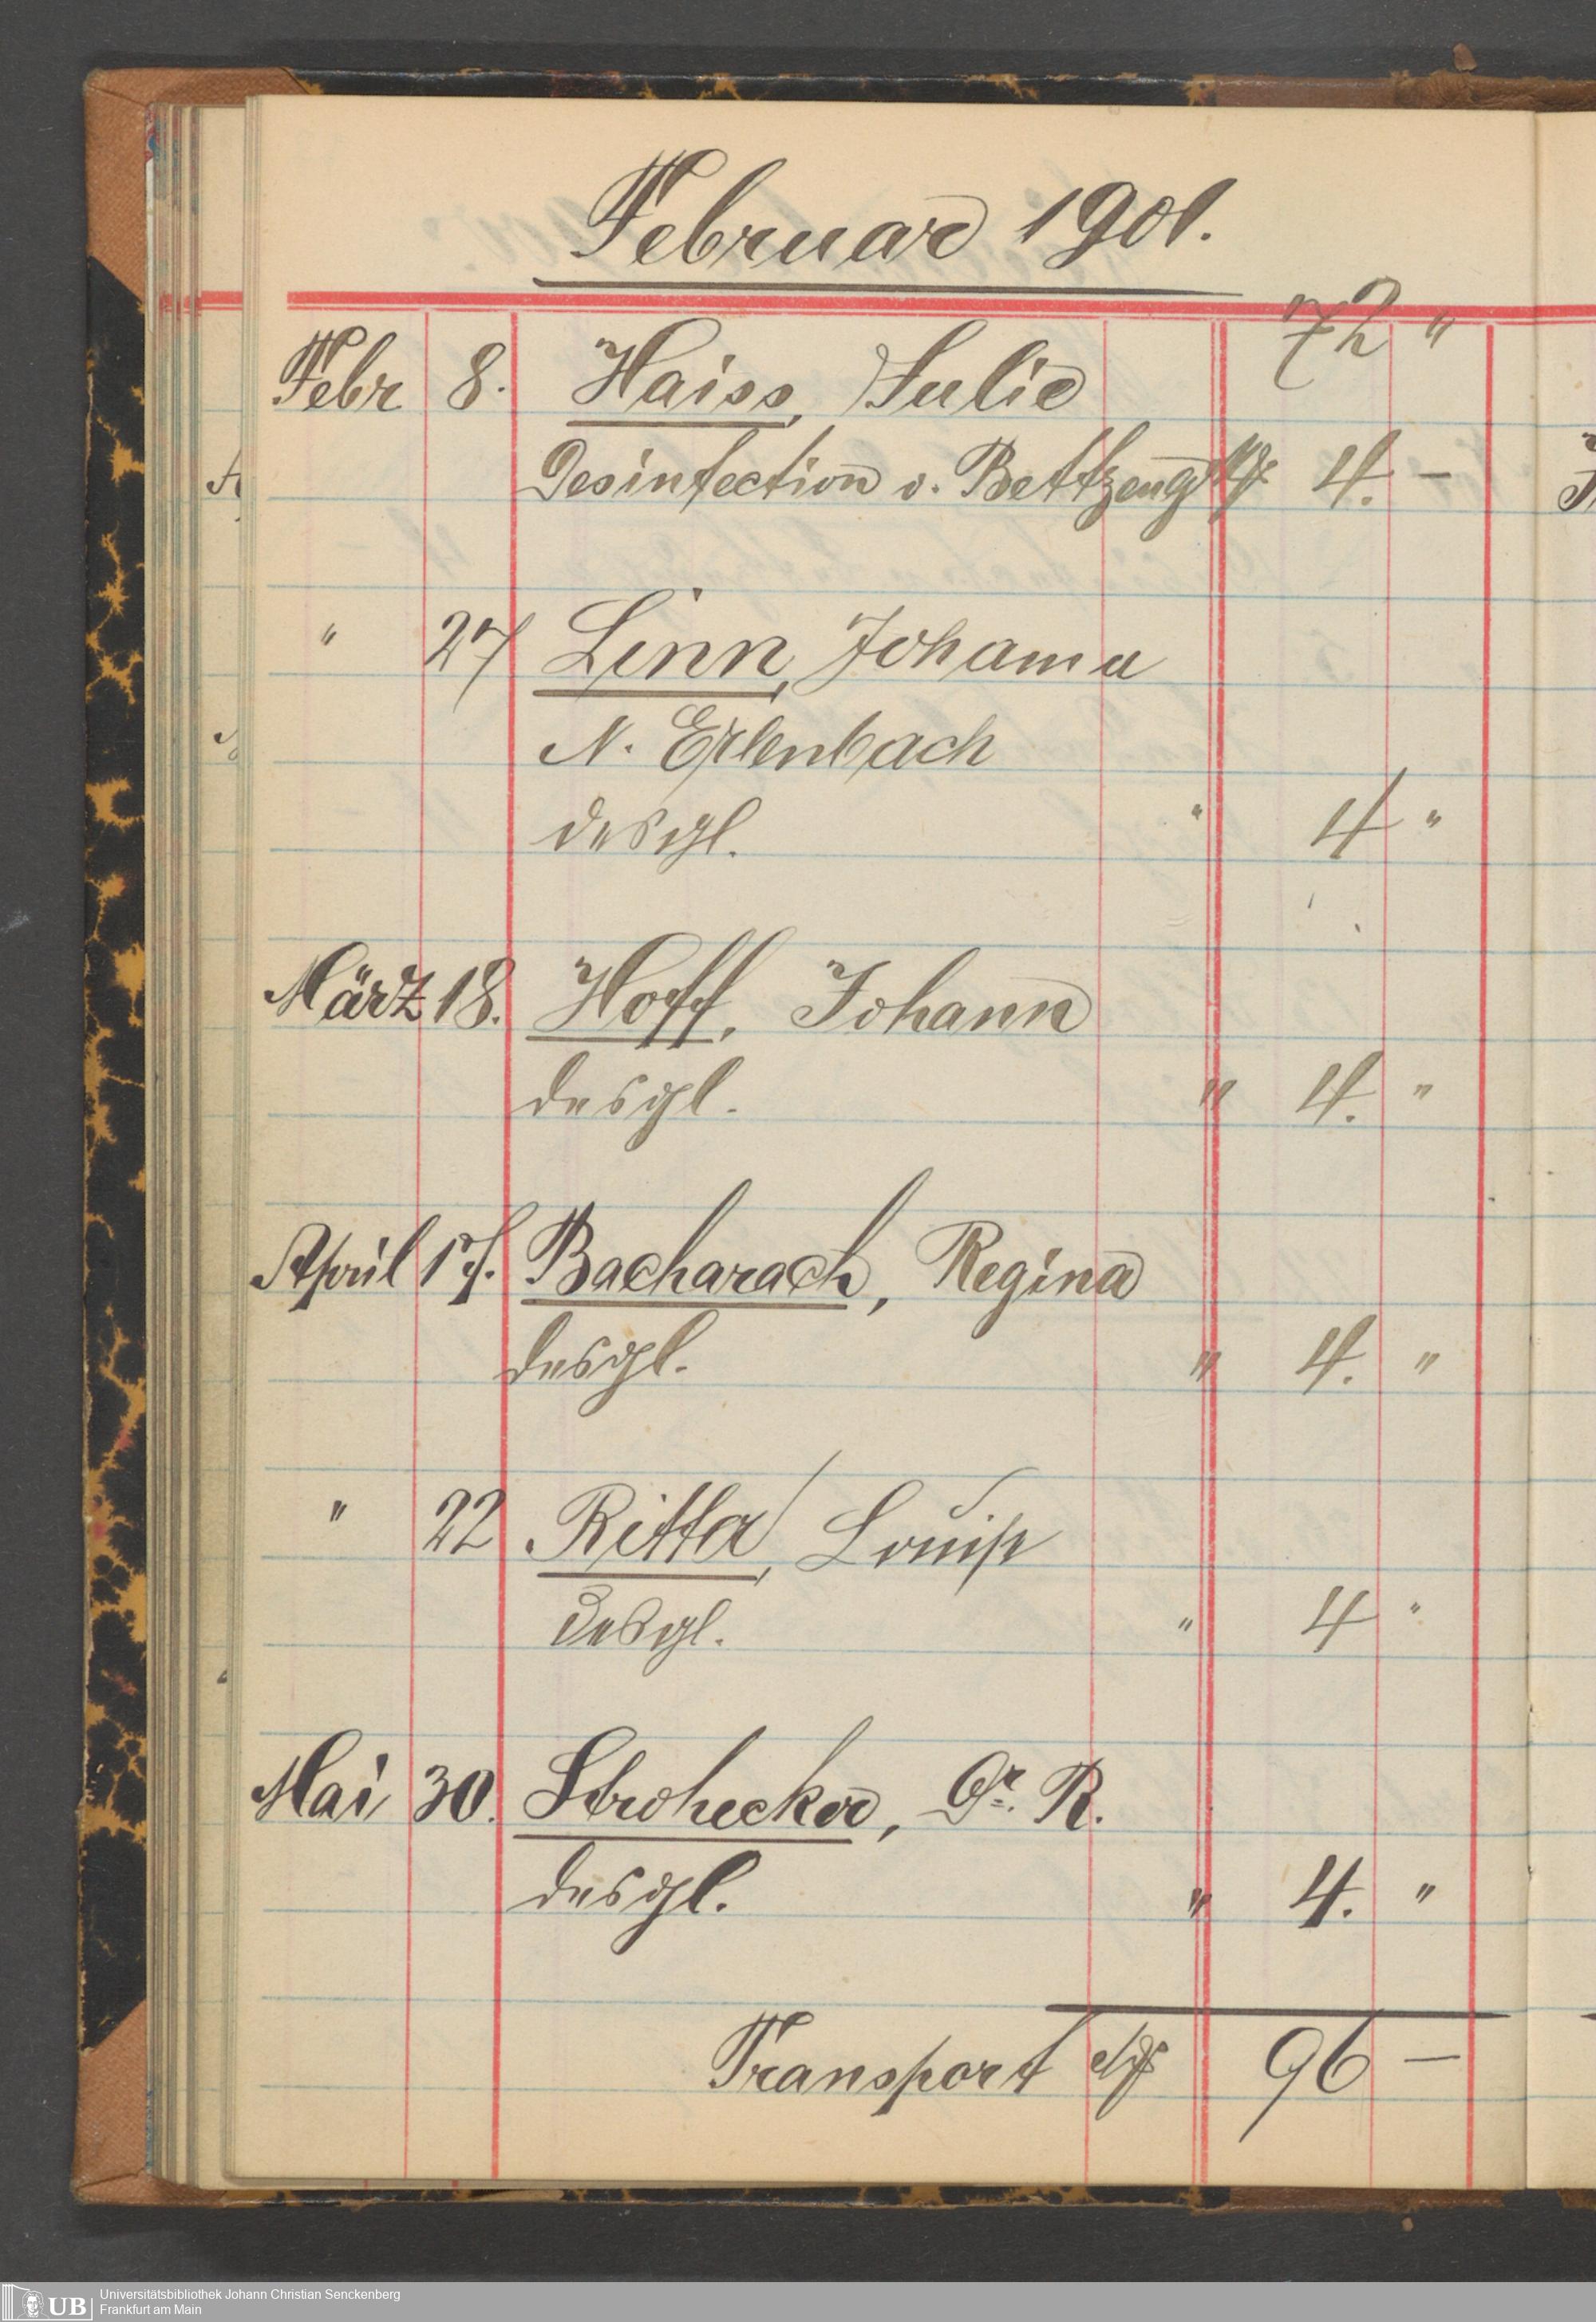 Februar 1901.
72 "
Febr 8. Haiss, Julie
Desinfection v. Bettzeug M 4. –
" 27 Linn, Johanna
N. Erlenbach
desgl. " 4 "
März 18. Hoff, Johann
desgl. " 4. "
April 17. Bacharach, Regina
desgl. " 4. "
" 22. Ritter, Louise
desgl. " 4 "
Mai 30. Strohecker, Dr. R.
desgl. " 4. "
Transport M 96 –
UB Universitätsbibliothek Johann Christian Senckenberg
Frankfurt am Main